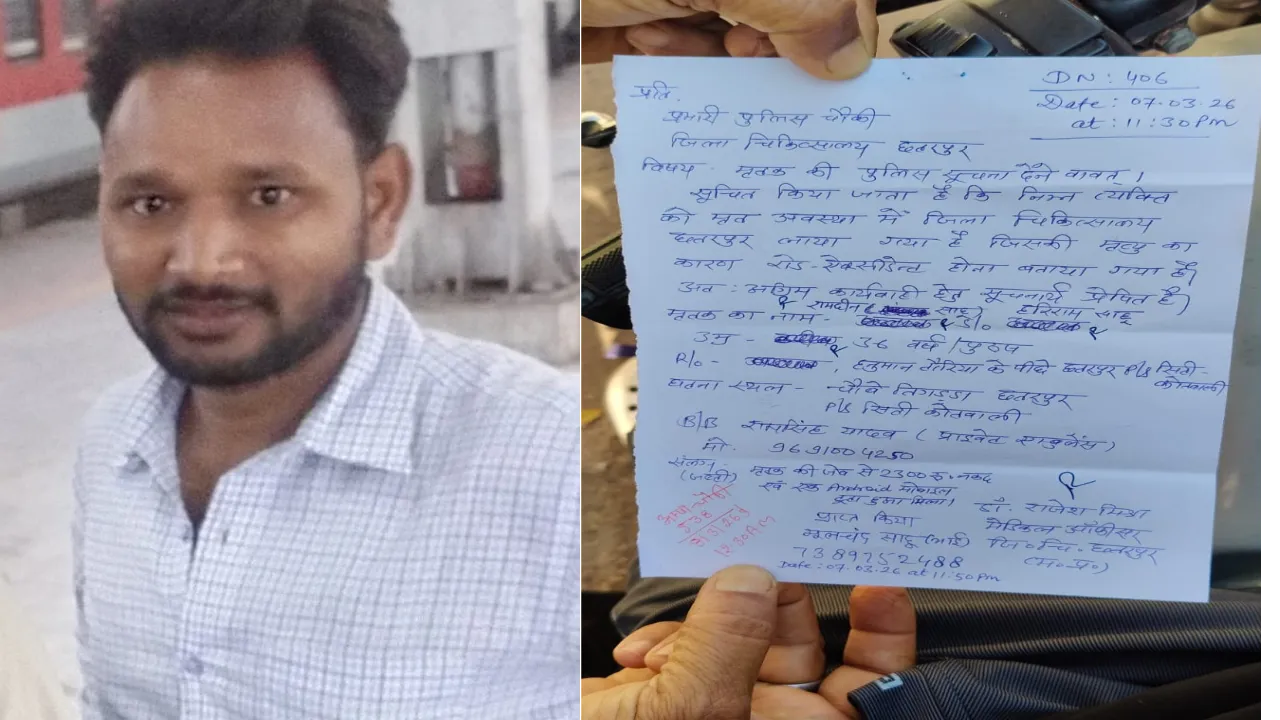 DN: 406
Date: 07.03.26
at: 11:30PM
प्रति,
प्रभारी पुलिस चौकी
जिला चिकित्सालय छतरपुर
विषय - मृतक की पुलिस सूचना देने वावत्।
सूचित किया जाता है कि निम्न व्यक्ति
को मृत अवस्था में जिला चिकित्सालय
छतरपुर लाया गया है जिसकी मृत्यु का
कारण रोड-ऐक्सीडेन्ट होना बताया गया है।
अतः अग्रिम कार्यवाही हेतु सूचनार्थ प्रेषित है।
मृतक का नाम - रामदीन साहू S/o हरिराम साहू
उम्र - 36 वर्ष/पुरुष
R/o - , हनुमान टौरिया के पीछे छतरपुर P/s सिटी-कोतवाली
घटना स्थल - चौबे तिगड्डा छतरपुर
P/s सिटी कोतवाली
B/B रामसिंह यादव (प्राइवेट एम्बुलेंस)
मो. 9691004250
संलग्न - मृतक की जेब से 2300 रु. नकद
(जप्ती) एवं एक Android मोबाइल
टूटा हुआ मिला।
डॉ. राजेश मिश्रा
मेडिकल ऑफीसर
जि०चि. छतरपुर
(म०प्र०)
प्राप्त किया
मूलचंद साहू (भाई)
7389752488
Date: 07.03.26 at 11:50PM
538
12:30AM